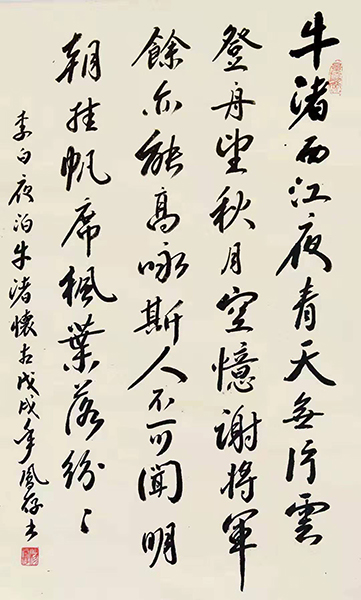 牛渚西江夜青天無片雲
登舟望秋月空憶謝將軍
餘亦能高咏斯人不可聞明
朝挂帆席楓葉落紛々
李白夜泊牛渚懷古戊戌年存书